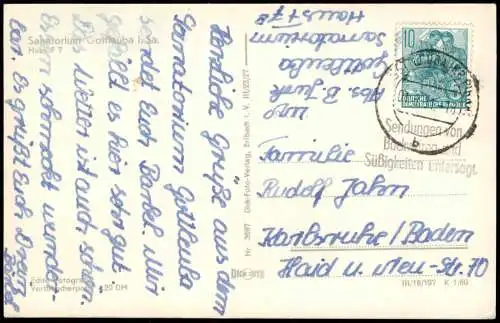 Sanatorium Gottleuba i. Sa.
Haus 7
Herzliche Grüße aus dem
Sanatorium Gottleuba
sendet Euch Bärbel. Mir
gefällt es hier sehr gut
Das Wetter ist auch schön.
schmeckt wunder-
bar. Es grüßt Euch
Bärbel
Echte Fotografie
Verbraucherpreis 0,20 DM
Nr. 3697 Dick-Foto-Verlag, Erlbach i. V. III/23/27
DICK
Abs. B. Junk
Gottleuba
Sanatorium
Haus + 7
10
DEUTSCHE
DEMOKRATISCHE REPUBLIK
b
Sendungen von
Backwaren und
Süßigkeiten untersagt.
An
Familie
Rudolf Jahn
Karlsruhe/Baden
Haid u. neu-Str. 70
III/18/197 K 1/69